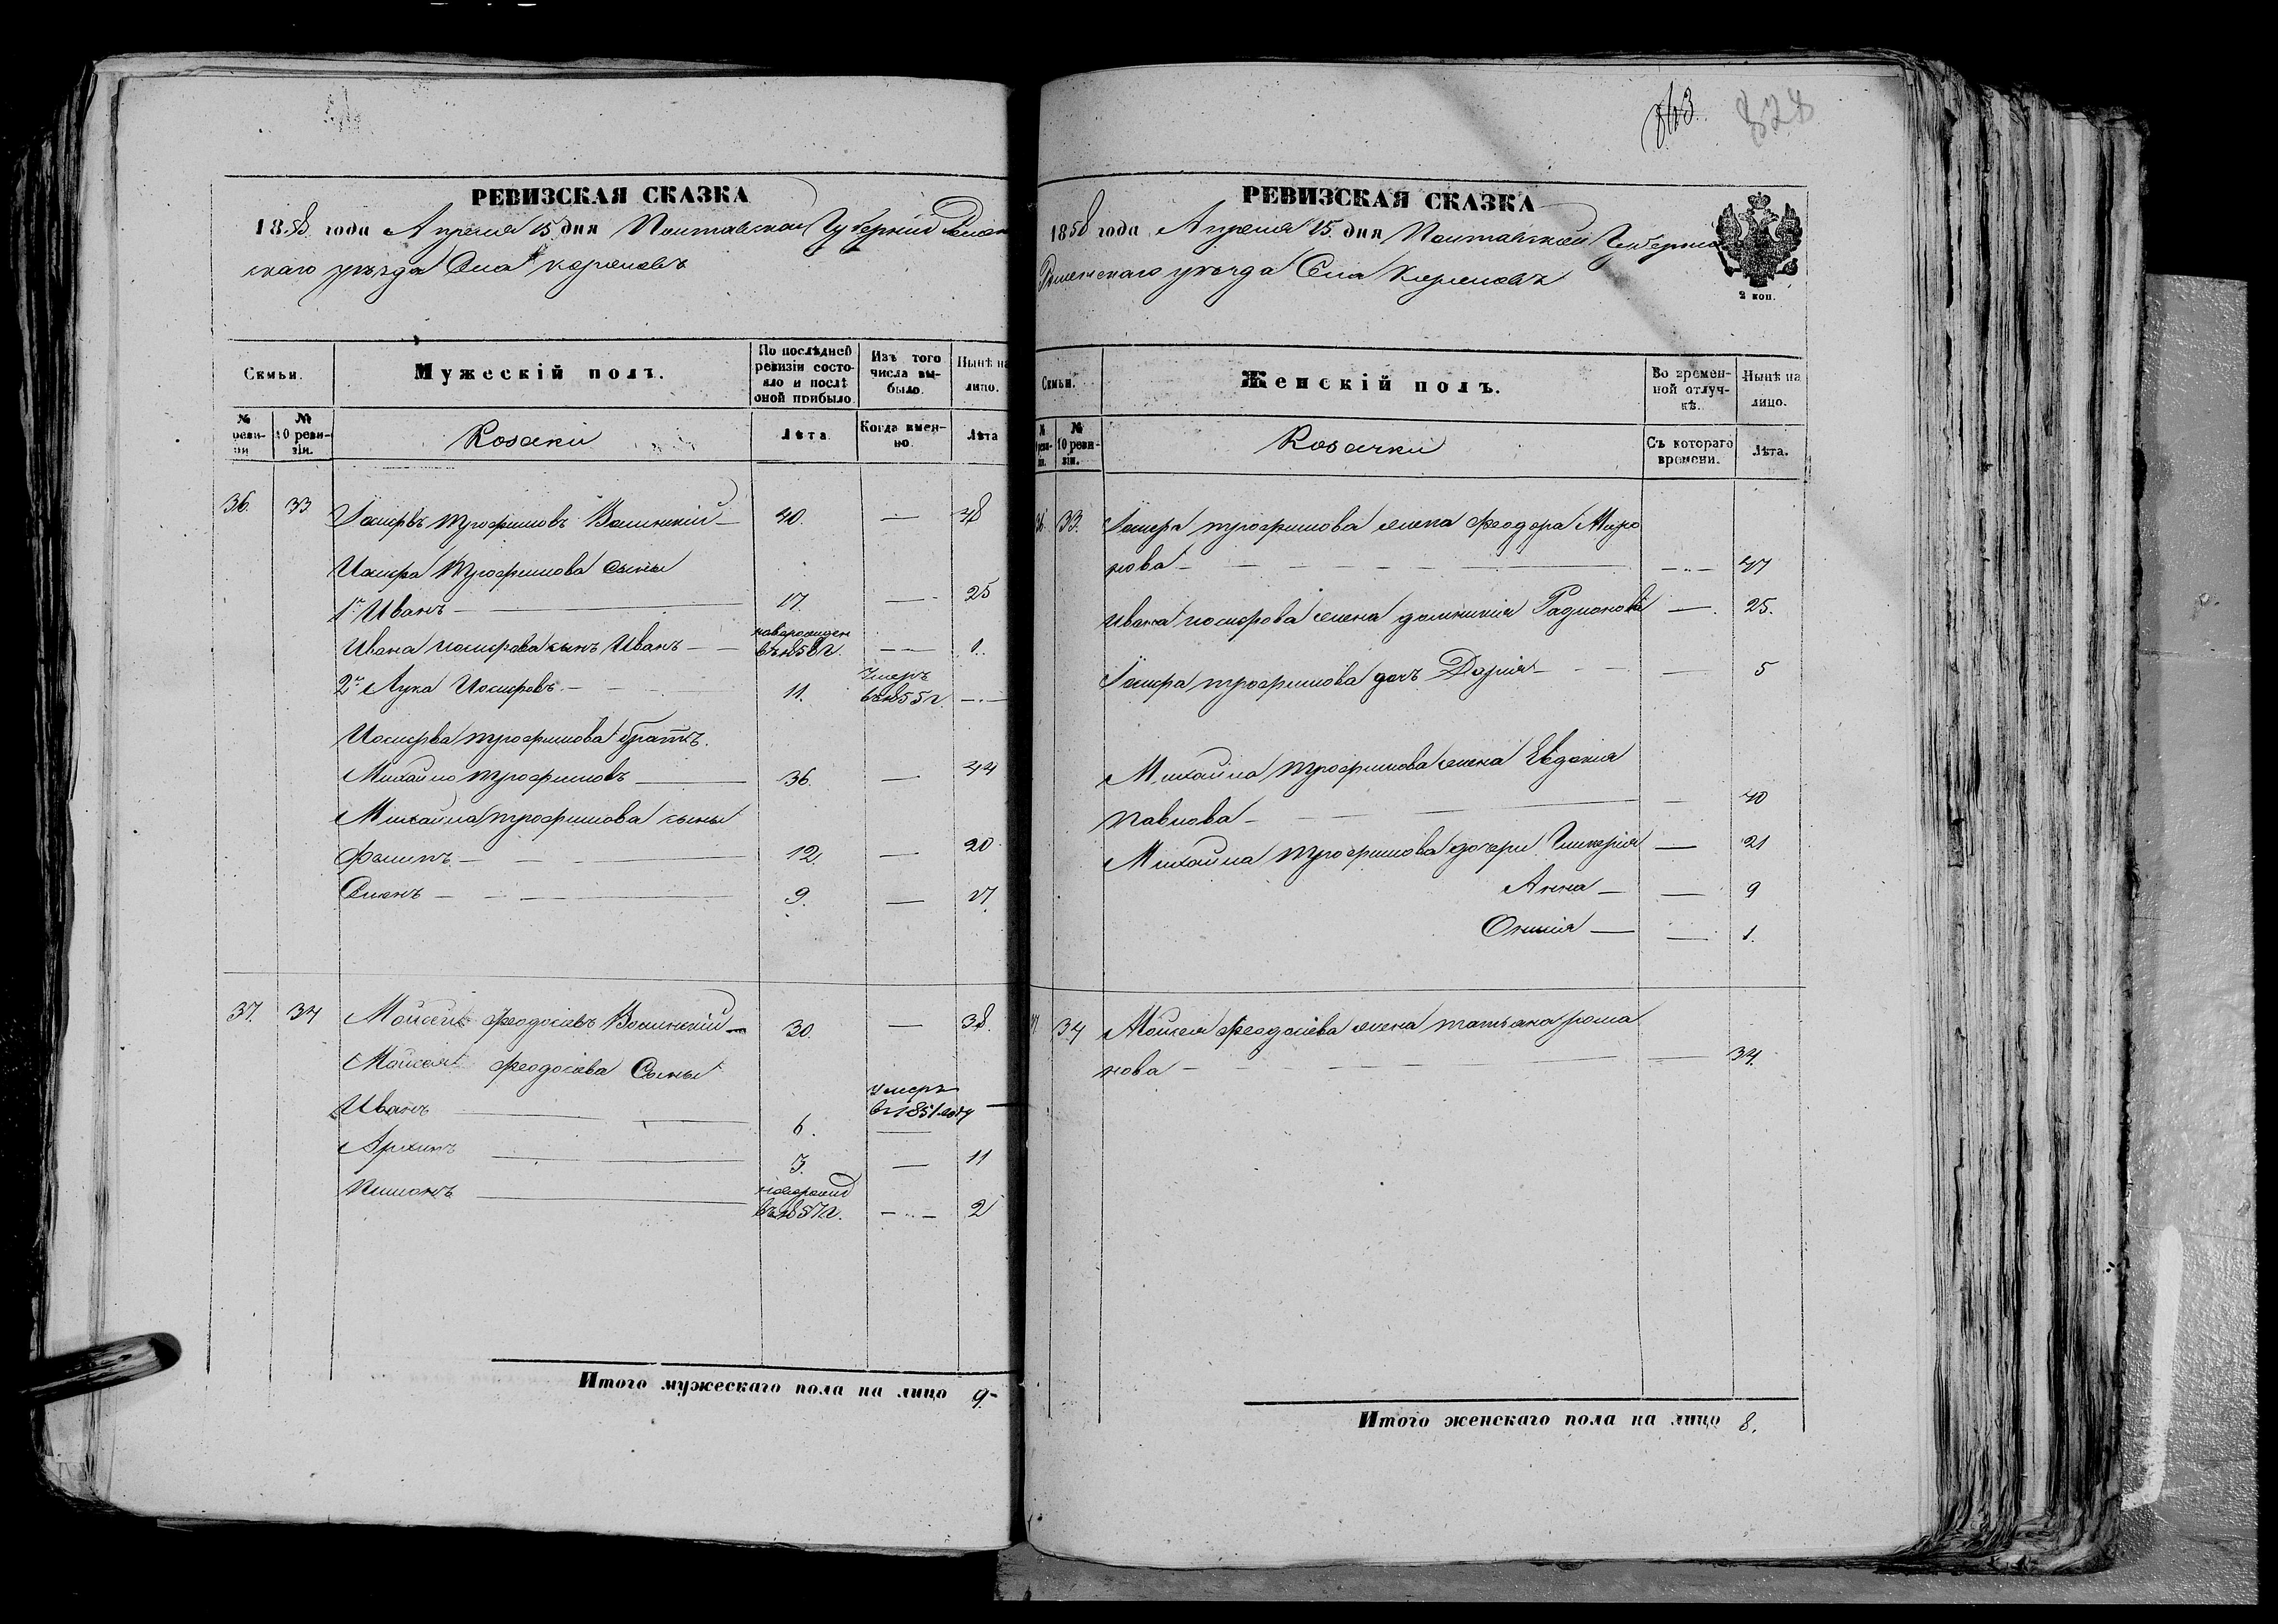 РЕВИЗСКАЯ СКАЗКА
1858 года Апреля 15 дня Полтавской Губерніи Ромен
скаго уѣзда Села
Семьи.
Мужескій полъ.
По послѣдней ревизіи состояло и послѣ оной прибыло.
Изъ того числа выбыло.
Нынѣ на лицо.
№ реви-зіи
№ 10 реви-зіи.
Козаки
Лѣта
Когда имен-но.
Лѣта
36. 33 Іосифъ Трофимовъ Волинскій — 40. — 48
Иосифа Трофимова сыны
1й Иванъ — 17. — 25
Ивана иосифова сынъ Иванъ — новорожден въ 1858 г. — 1.
2й Лука Иосифовъ — 11. Умеръ въ 1855 г. —
Иосифа трофимова братъ.
Михайло трофимовъ — 36. — 44
Михайла трофимова сыны
Филипъ — 12. — 20
Семенъ — 9. — 17.
37. 34 Мойсей Феодосіевъ Волинскій — 30. — 38.
Мойсея Феодосіева Сыны
Иванъ — 6. умеръ въ 1851 году —
Архипъ — 3. — 11
новорожд въ 1857 г. — 2
Итого мужескаго пола на лицо 9 -
863. 828
РЕВИЗСКАЯ СКАЗКА
1858 года Апреля 15. дня Полтавской Губерніи
Роменскаго уѣзда Села
2 коп.
Семьи.
Женскій полъ.
Во времен-ной отлуч-кѣ.
Нынѣ на лицо.
№ 10 реви-зіи.
Козачки
Съ котораго времени.
Лѣта.
36. 33. Іосифа трофимова жена Феодора Миро
нова — — 47
Ивана иосифова жена домникія Радионова — 25.
Іосифа трофимова дочь Дарія — — 5
Михайла трофимова жена Евдокія
Павлова — — 40
Михайла трофимова дочери Гликерія — 21
Анна — — 9
— — 1.
34 Мойсея Феодосіева жена татьяна рома
нова — — 34.
Итого женскаго пола на лицо 8.